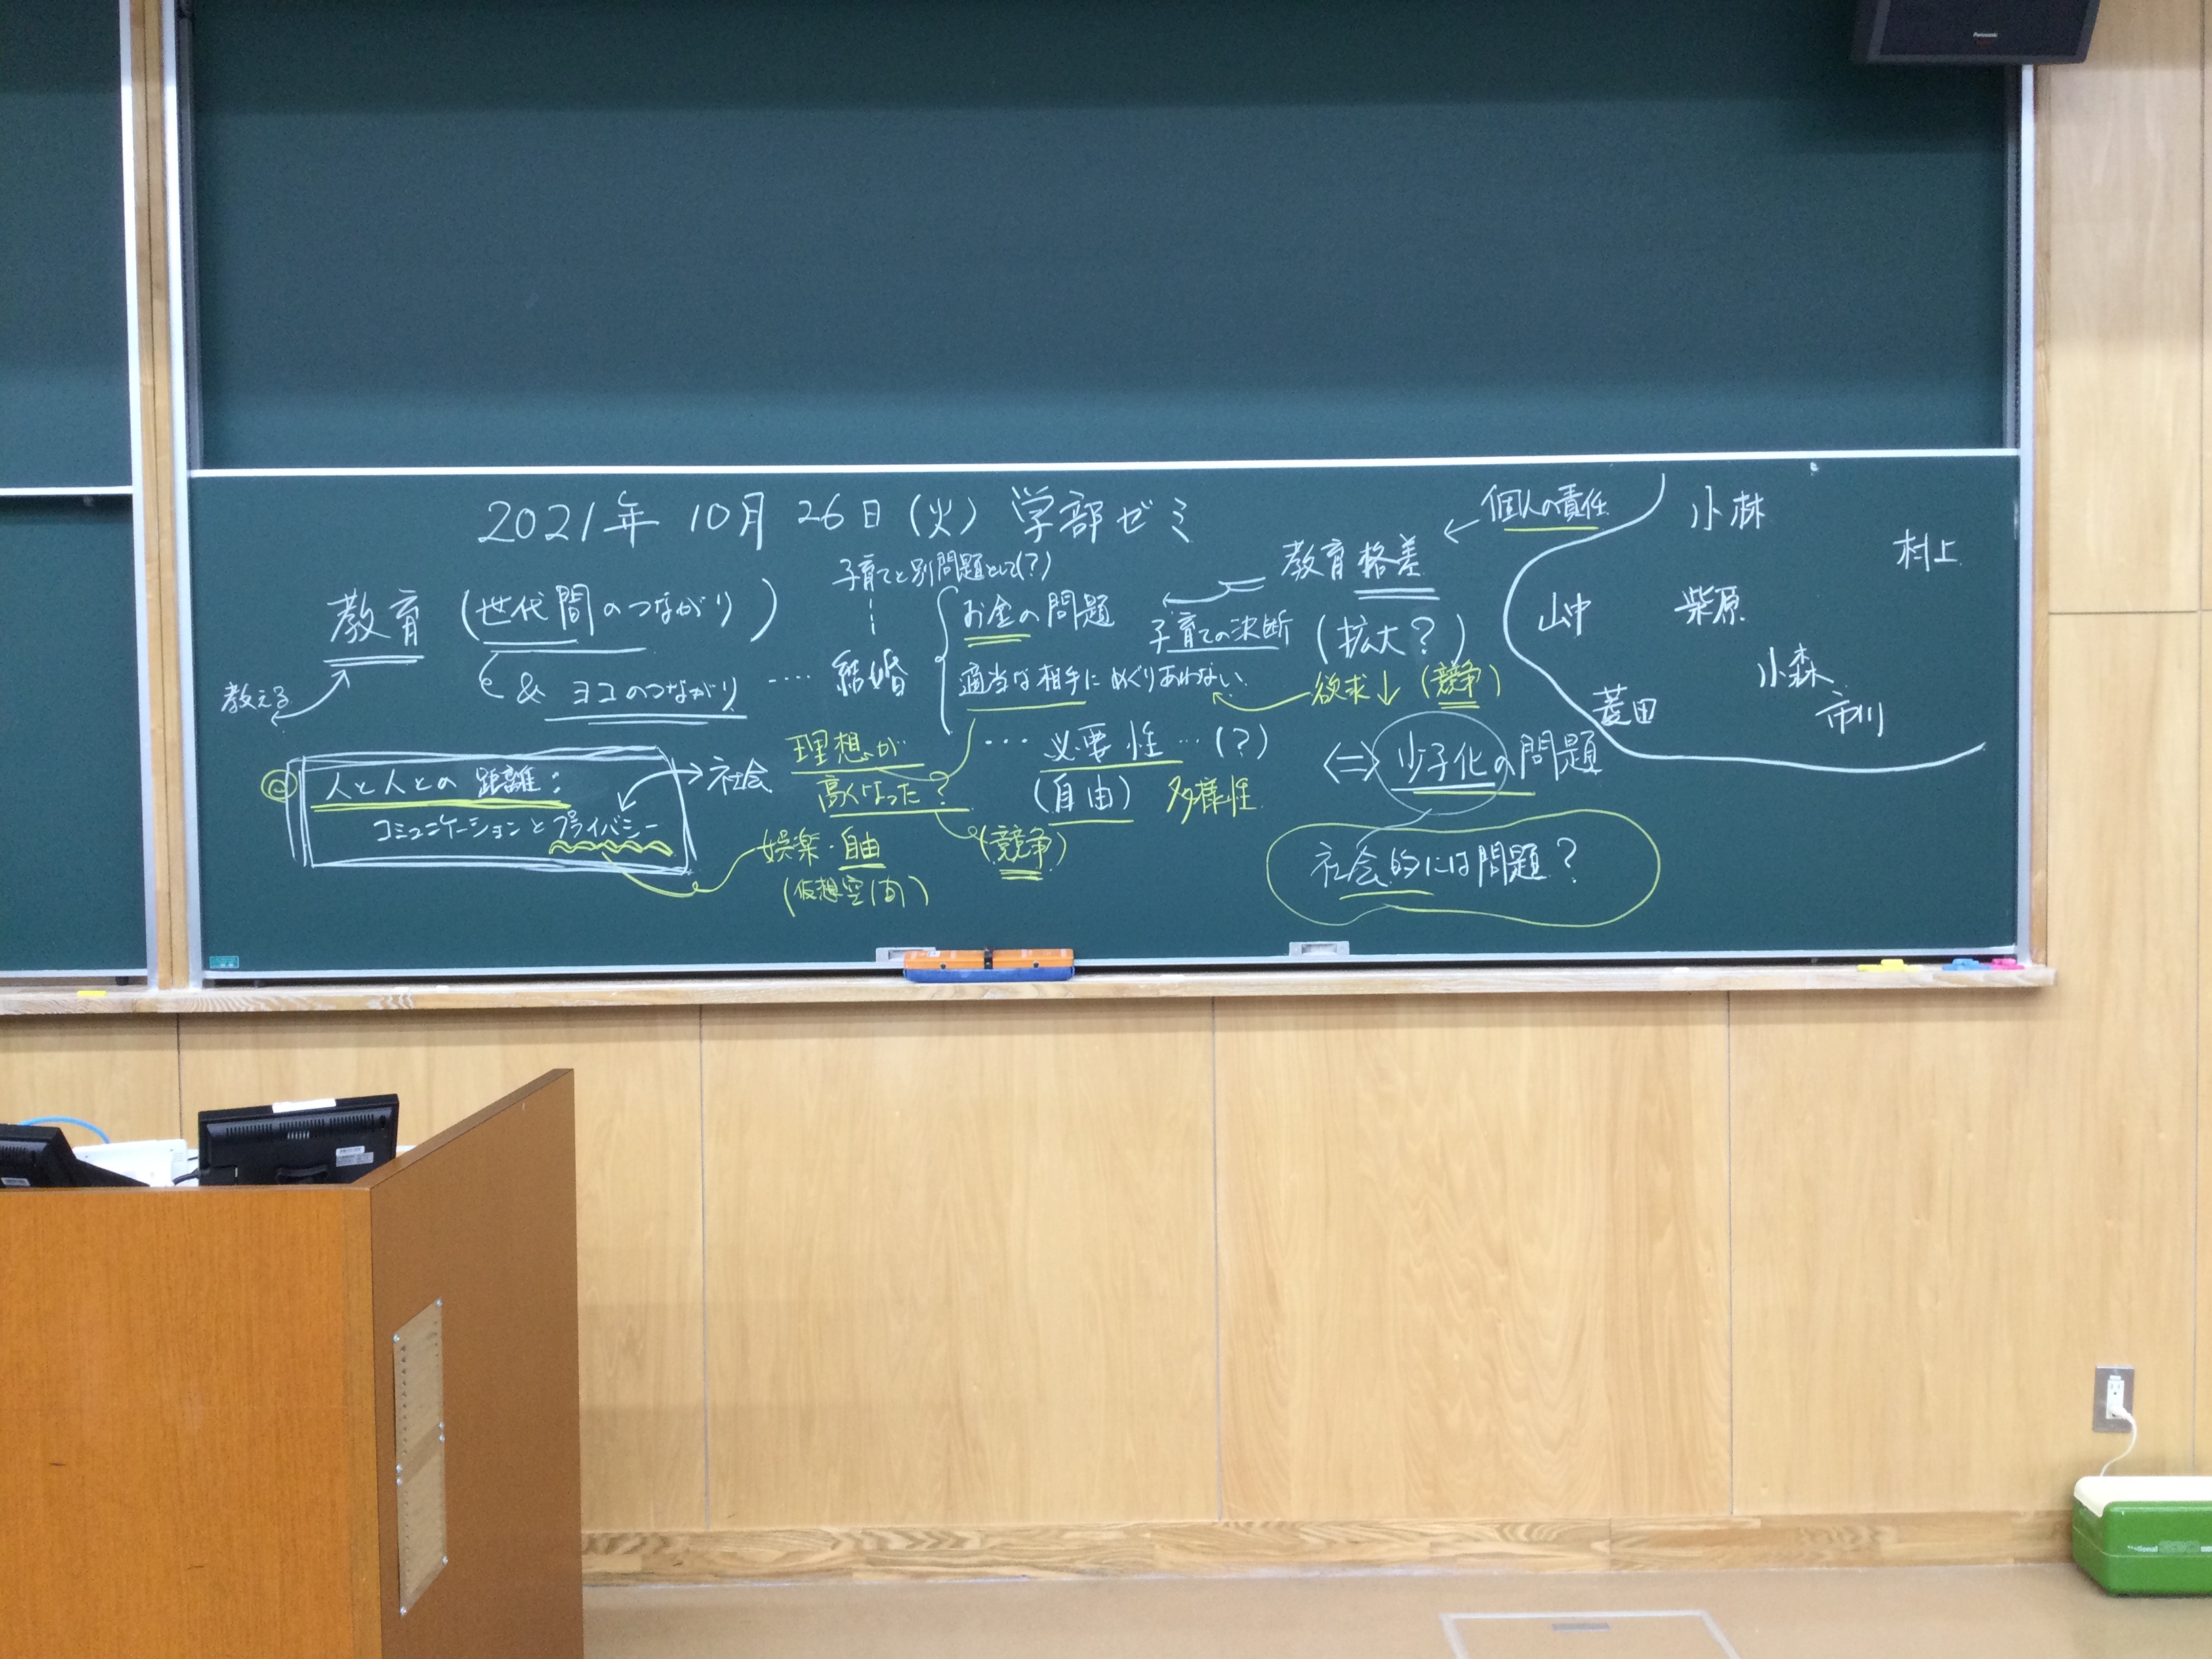 2021年 10月 26日(火) 学部ゼミ
個人の責任
小林
村上
子育てと別問題として(?)
教育格差
教育 (世代間のつながり)
お金の問題
子育ての決断 (拡大?)
山中
柴原
& ヨコのつながり ････ 結婚
適当な相手にめぐりあわない
欲求↓ (競争)
小森
市川
菱田
教える
理想が
高くなった?
･･･ 必要性 ･･･ (?)
(自由) 多様性
⇔ 少子化の問題
人と人との距離:
コミュニケーションとプライバシー
社会
娯楽・自由
(仮想空間)
(競争)
社会的には問題?
Panasonic
National